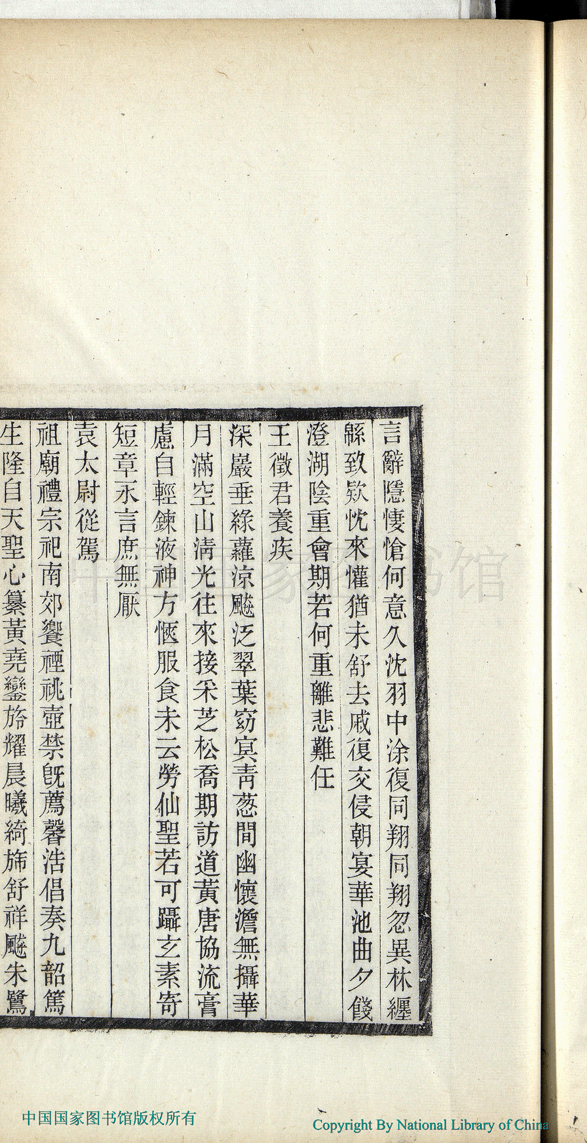 言辭隱悽愴何意久沈羽中涂復同翔同翔忽異林纏
緜致欵忱來懽猶未舒去戚復交侵朝宴華池曲夕餞
澄湖陰重會期若何重離悲難任
王徵君養疾
深巖垂綠蘿涼飈泛翠葉窈寞靑蔥閒幽懷澹無攝華
月滿空山淸光往來接采芝松喬期訪道黃唐協流膏
慮自輕鍊液神方愜服食未云勞仙聖若可躡玄素寄
短章永言庶無厭
袁太尉從駕
祖廟禮宗祀南郊饗禋祧壺禁旣薦馨浩倡奏九韶篤
生隆自天聖心纂黃堯鑾旂耀晨曦綺斾舒祥飈朱鷺
中国国家图书馆
中国国家图书馆版权所有
Copyright By National Library of China